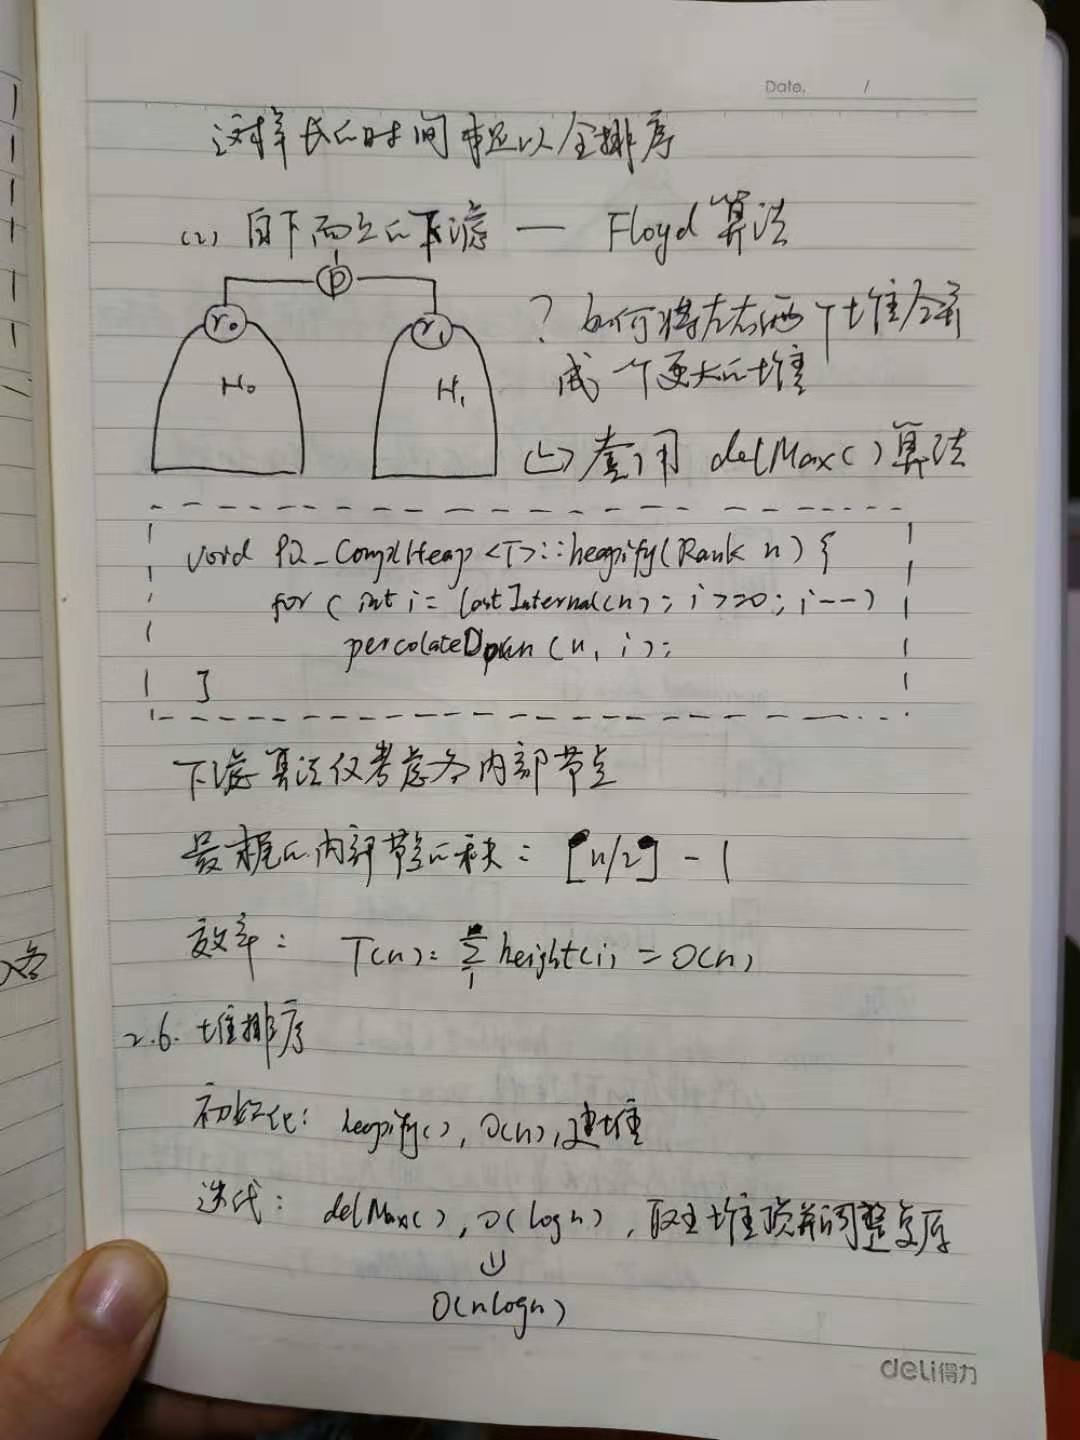 Date. /
这样长的时间足以全排序
(2) 自下而上的下滤 — Floyd 算法
p
r₀ r₁
H₀ H₁
? 如何将左右两个堆合并
成一个更大的堆
=> 套用 delMax() 算法
void PQ_ComplHeap <T>::heapify(Rank n) {
for ( int i = lastInternal(n); i >= 0; i--)
percolateDown (n, i);
}
下滤算法仅考虑各内部节点
最末的内部节点的秩: ⌊n/2⌋ - 1
效率: T(n) = Σ height(i) = O(n)
2.6. 堆排序
初始化: heapify(), O(n), 建堆
迭代: delMax(), O(logn), 取出堆顶并调整复原
⇓
O(nlogn)
deli得力